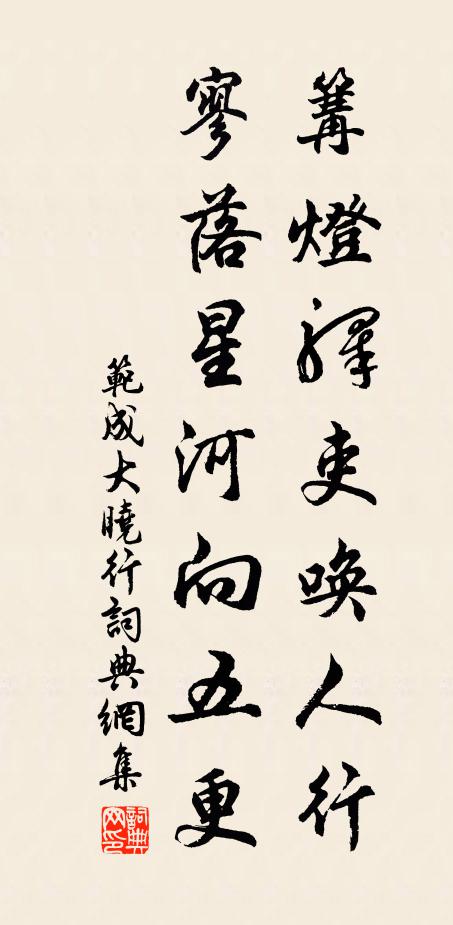 篝燈驛吏喚人行
寥落星河向五更
範成大曉行詞典網集
詞典網印